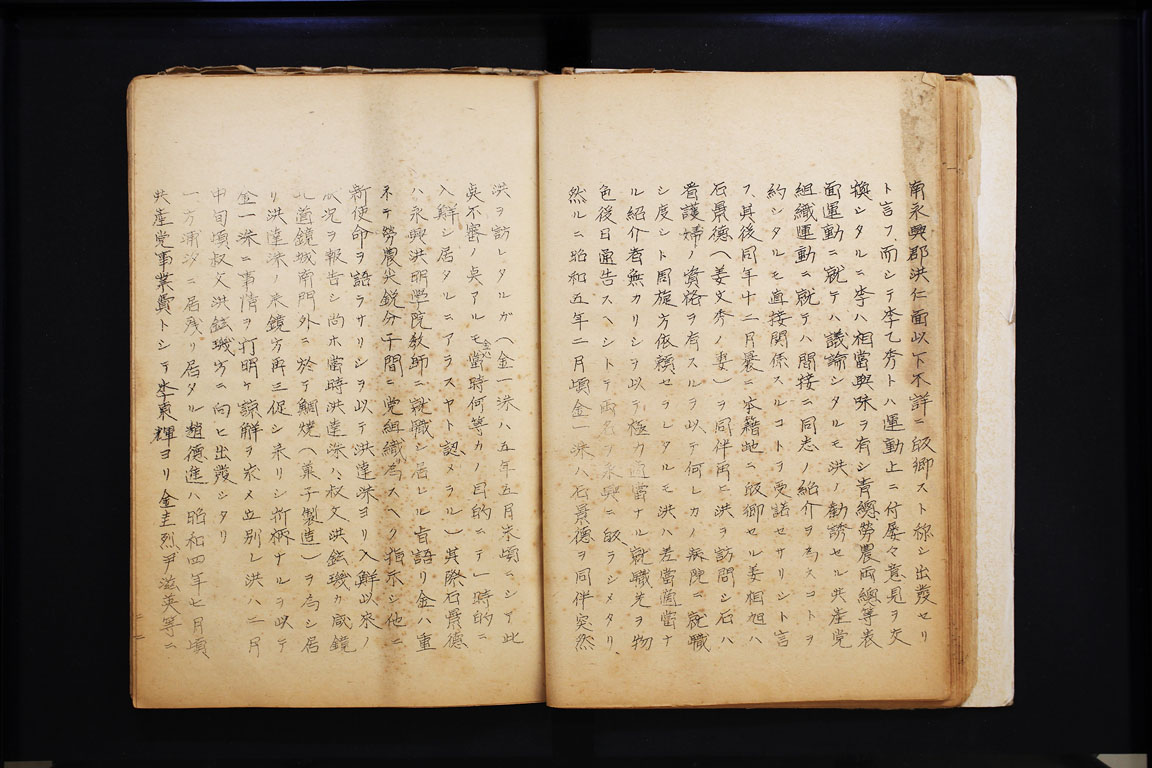 南永興郡洪仁面以下不詳ニ皈郷スト称シ出發セリ
ト言フ而シテ李乙秀トハ運動上ニ付屡々意見ヲ交
換シタルニ李ハ相當興味ヲ有シ青總勞農両總等表
面運動ニ就テハ議論シタルモ洪ノ勧誘セル共産党
組織運動ニ就テハ間接ニ同志ノ紹介ヲ為スコトヲ
約シタルモ直接関係スルコトヲ受諾セサリシト言
フ、其後同年十二月裏ニ本籍地ニ皈郷セル姜相旭ハ
石景德(姜文秀ノ妻)ヲ同伴再ヒ洪ヲ訪問シ石ハ
看護婦ノ資格ヲ有スルヲ以テ何レカノ病院ニ就職
シ度シト周旋方依頼セラレタルモ洪ハ差當適當ナ
ル紹介者無カリシヲ以テ極力適當ナル就職先ヲ物
色後日通告スヘシトテ両名ヲ永興ニ皈ラシメタリ、
然ルニ昭和五年二月頃金一洙ハ石景德ヲ同伴突然
洪ヲ訪レタルガ(金一洙ハ五年五月末頃ニシテ此
奌不審ノ奌アルモ當時何等カノ目的ニテ一時的ニ
入鮮シ居タルニアラスヤト認メラル)其際石景德
ハ永興洪明學院教師ニ就職シ居レル旨語リ金ハ重
ネテ勞農尖鋭分子間ニ党組織為スヘク指示シ他ニ
新使命ヲ語ラサリシヲ以テ洪達洙ヨリ入鮮以来ノ
状況ヲ報告シ尚ホ當時洪達洙ハ、叔父洪鋐璣ク咸鏡
北道鏡城南門外ニ於テ鯛焼(菓子製造)ヲ為シ居
リ洪達洙ノ来鏡方再三促シ来リシ折柄ナルヲ以テ
金一洙ニ事情ヲ打明ケ諒解ヲ求メ立別レ洪ハ二月
中旬頃叔父洪鋐璣方ニ向ヒ出發シタリ
一方浦汐ニ居残リ居タル趙德進ハ昭和四年七月頃
共産党事業費トシテ李東輝ヨリ金圭烈尹滋英等ニ